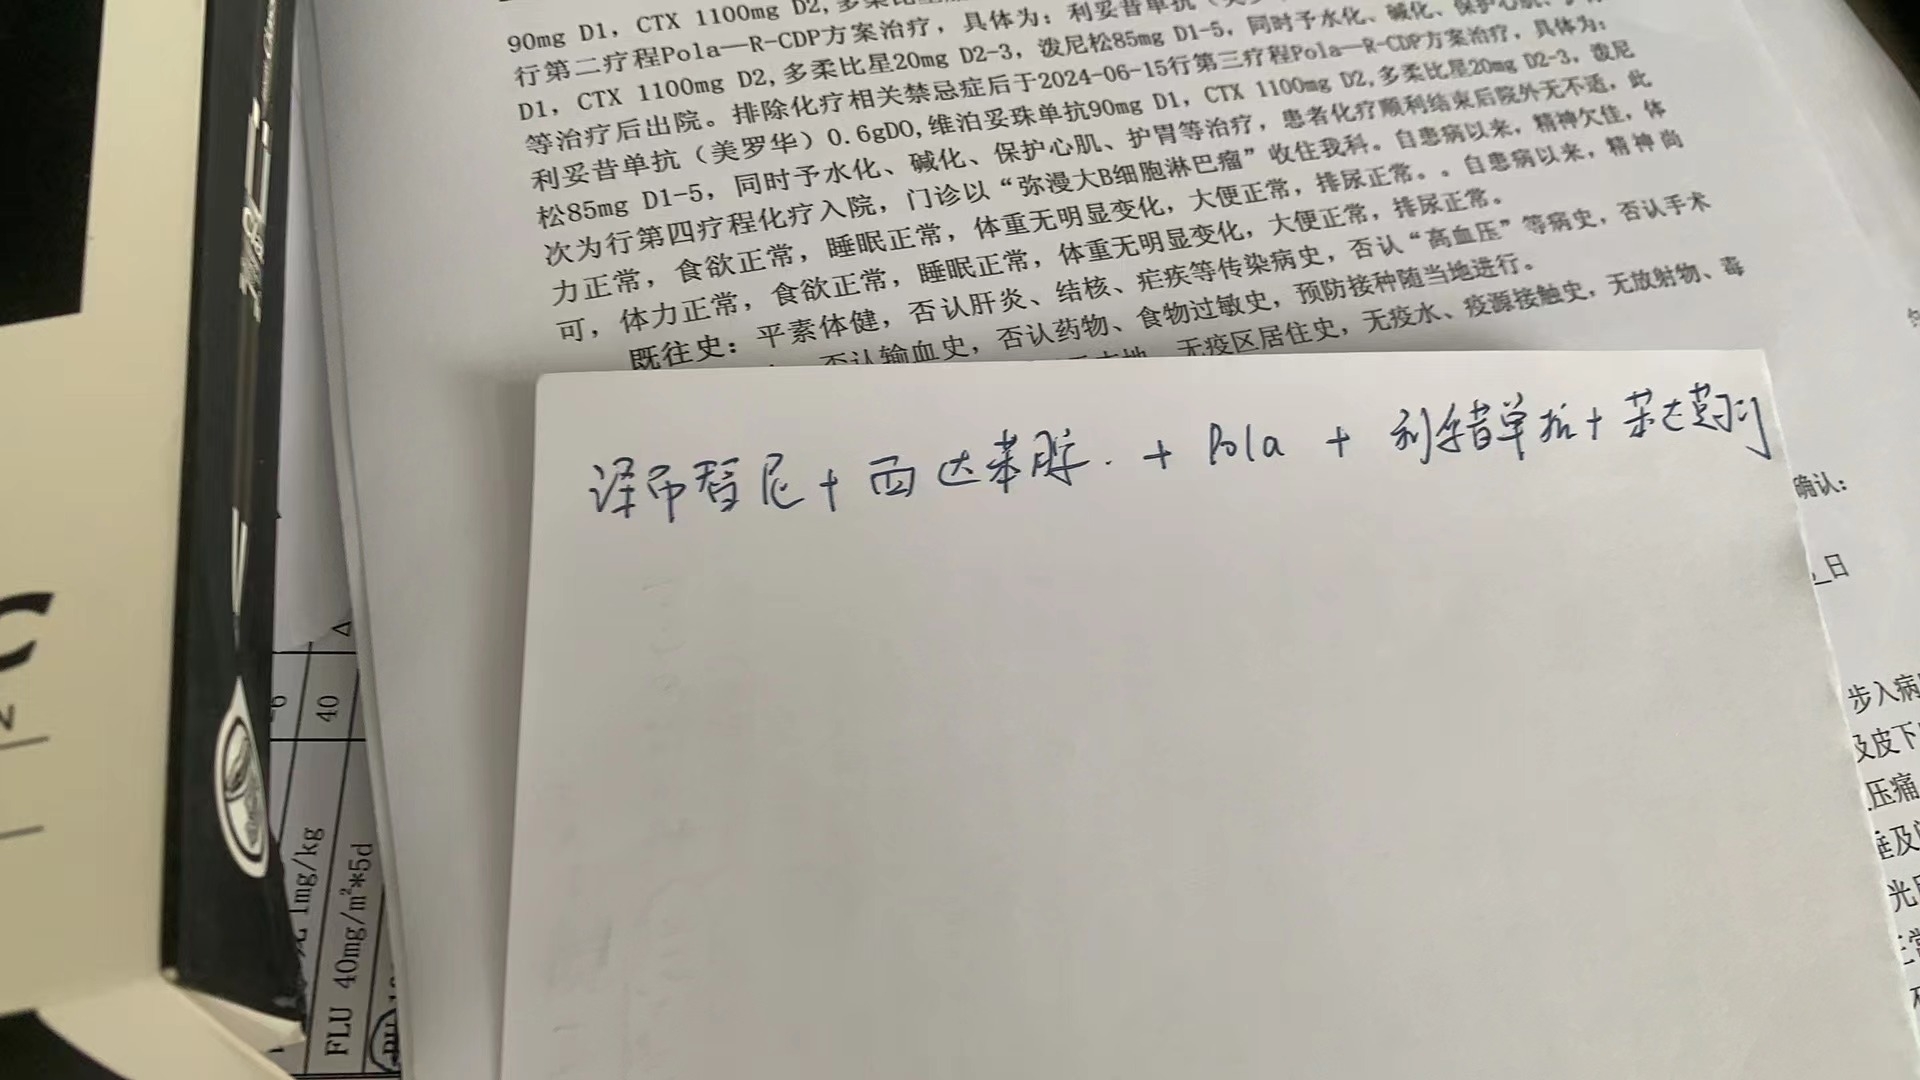 90mg D1, CTX 1100mg D2,多柔比星
行第二疗程Pola—R-CDP方案治疗，具体为：利妥昔单抗
D1, CTX 1100mg D2,多柔比星20mg D2-3，泼尼松85mg D1-5，同时予水化、碱化、保护心肌、
等治疗后出院。排除化疗相关禁忌症后于2024-06-15行第三疗程Pola—R-CDP方案治疗，具体为：
利妥昔单抗（美罗华）0.6gD0,维泊妥珠单抗90mg D1, CTX 1100mg D2,多柔比星20mg D2-3，泼尼
松85mg D1-5，同时予水化、碱化、保护心肌、护胃等治疗，患者化疗顺利结束后院外无不适，此
次为行第四疗程化疗入院，门诊以“弥漫大B细胞淋巴瘤”收住我科。自患病以来，精神欠佳，体
力正常，食欲正常，睡眠正常，体重无明显变化，大便正常，排尿正常。。自患病以来，精神尚
可，体力正常，食欲正常，睡眠正常，体重无明显变化，大便正常，排尿正常。
既往史：平素体健，否认肝炎、结核、疟疾等传染病史，否认“高血压”等病史，否认手术
否认输血史，否认药物、食物过敏史，预防接种随当地进行。
无疫区居住史，无疫水、疫源接触史，无放射物、毒
泽布替尼+西达苯胺.+Pola+利妥昔单抗+苯达莫司
确认：
日
步入病
及皮下
压痛
垂及
光
40
1mg/kg
FLU 40mg/m²*5d